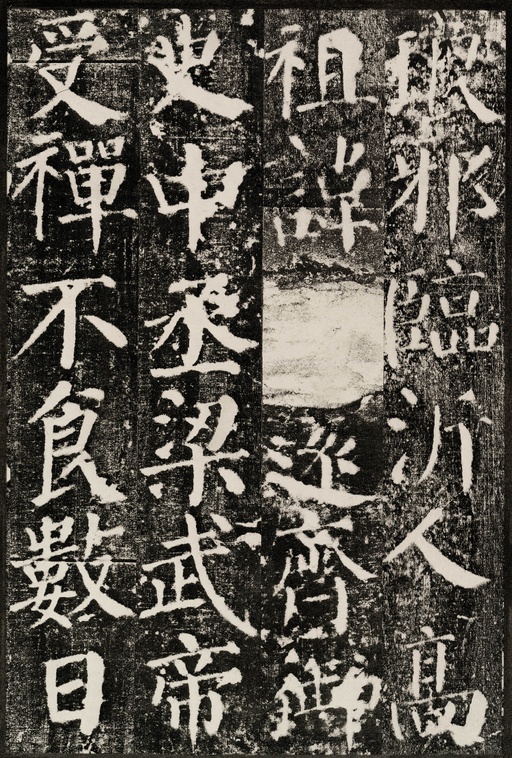 琅邪臨沂人高
祖諱逐齊御
史中丞梁武帝
受禪不食數日